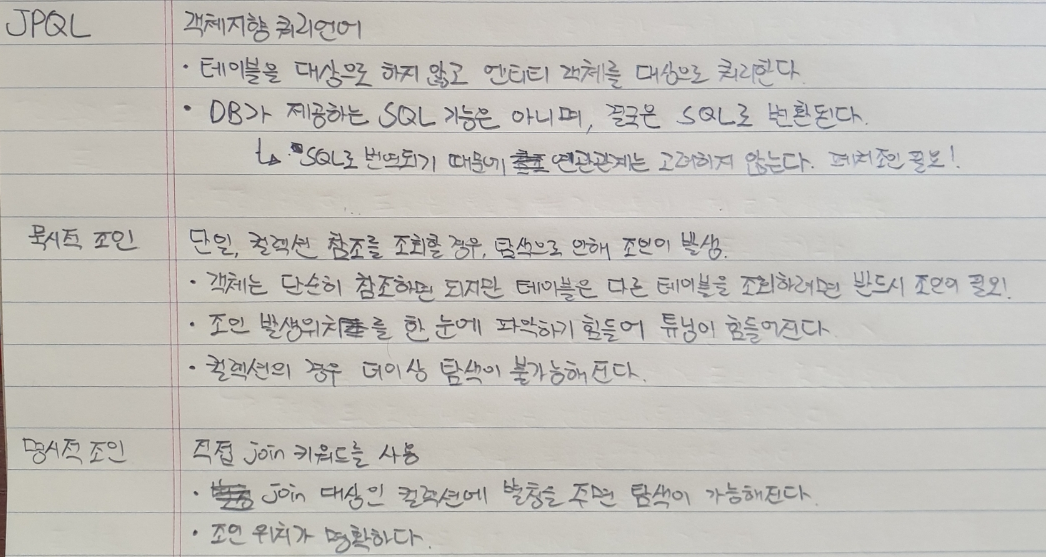 JPQL 객체지향 쿼리언어
· 테이블을 대상으로 하지 않고 엔티티 객체를 대상으로 쿼리한다.
· DB가 제공하는 SQL 기능은 아니며, 결국은 SQL로 변환된다.
↳ SQL로 번역되기 때문에 연관관계는 고려하지 않는다. 페치조인 필요!
묵시적 조인 단일, 컬렉션 참조를 조회할 경우, 탐색으로 인해 조인이 발생.
· 객체는 단순히 참조하면 되지만 테이블은 다른 테이블을 조회하려면 반드시 조인이 필요!
· 조인 발생위치를 한 눈에 파악하기 힘들어 튜닝이 힘들어진다.
· 컬렉션의 경우 더이상 탐색이 불가능해진다.
명시적 조인 직접 join 키워드를 사용
· join 대상인 컬렉션에 별칭을 주면 탐색이 가능해진다.
· 조인 위치가 명확하다.